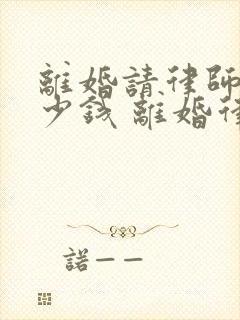 離婚請律師
少錢 離婚律
諾——